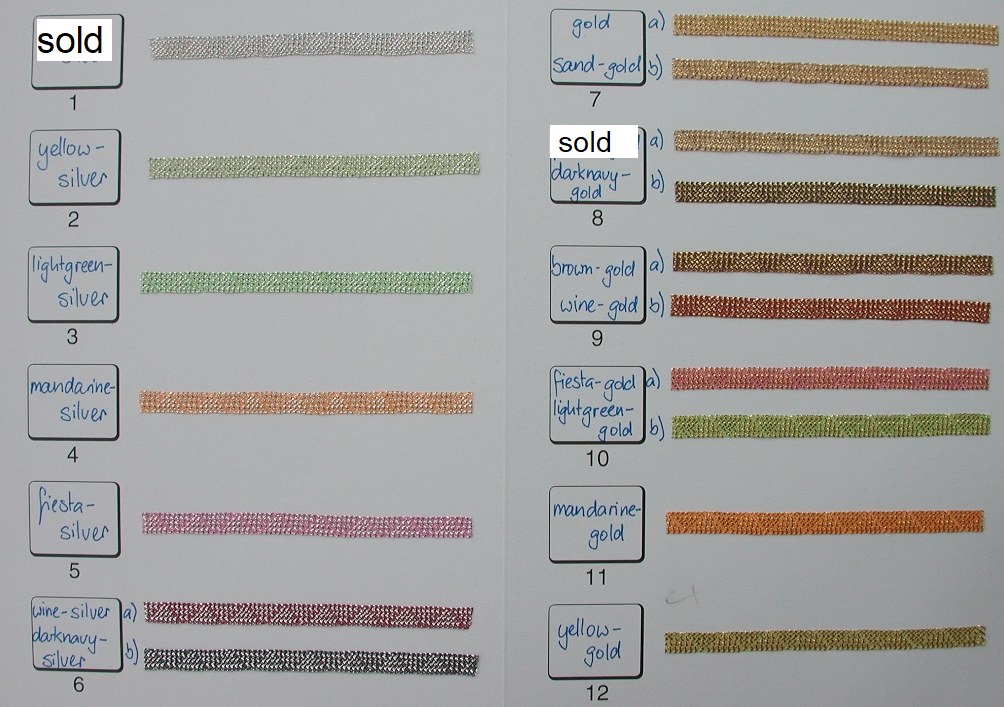 sold
1
yellow-
silver
2
lightgreen-
silver
3
mandarine-
silver
4
fiesta-
silver
5
wine-silver a)
darknavy-
silver b)
6
gold a)
sand-gold b)
7
sold a)
darknavy-
gold b)
8
brown-gold a)
wine-gold b)
9
fiesta-gold a)
lightgreen-
gold b)
10
mandarine-
gold
11
yellow-
gold
12